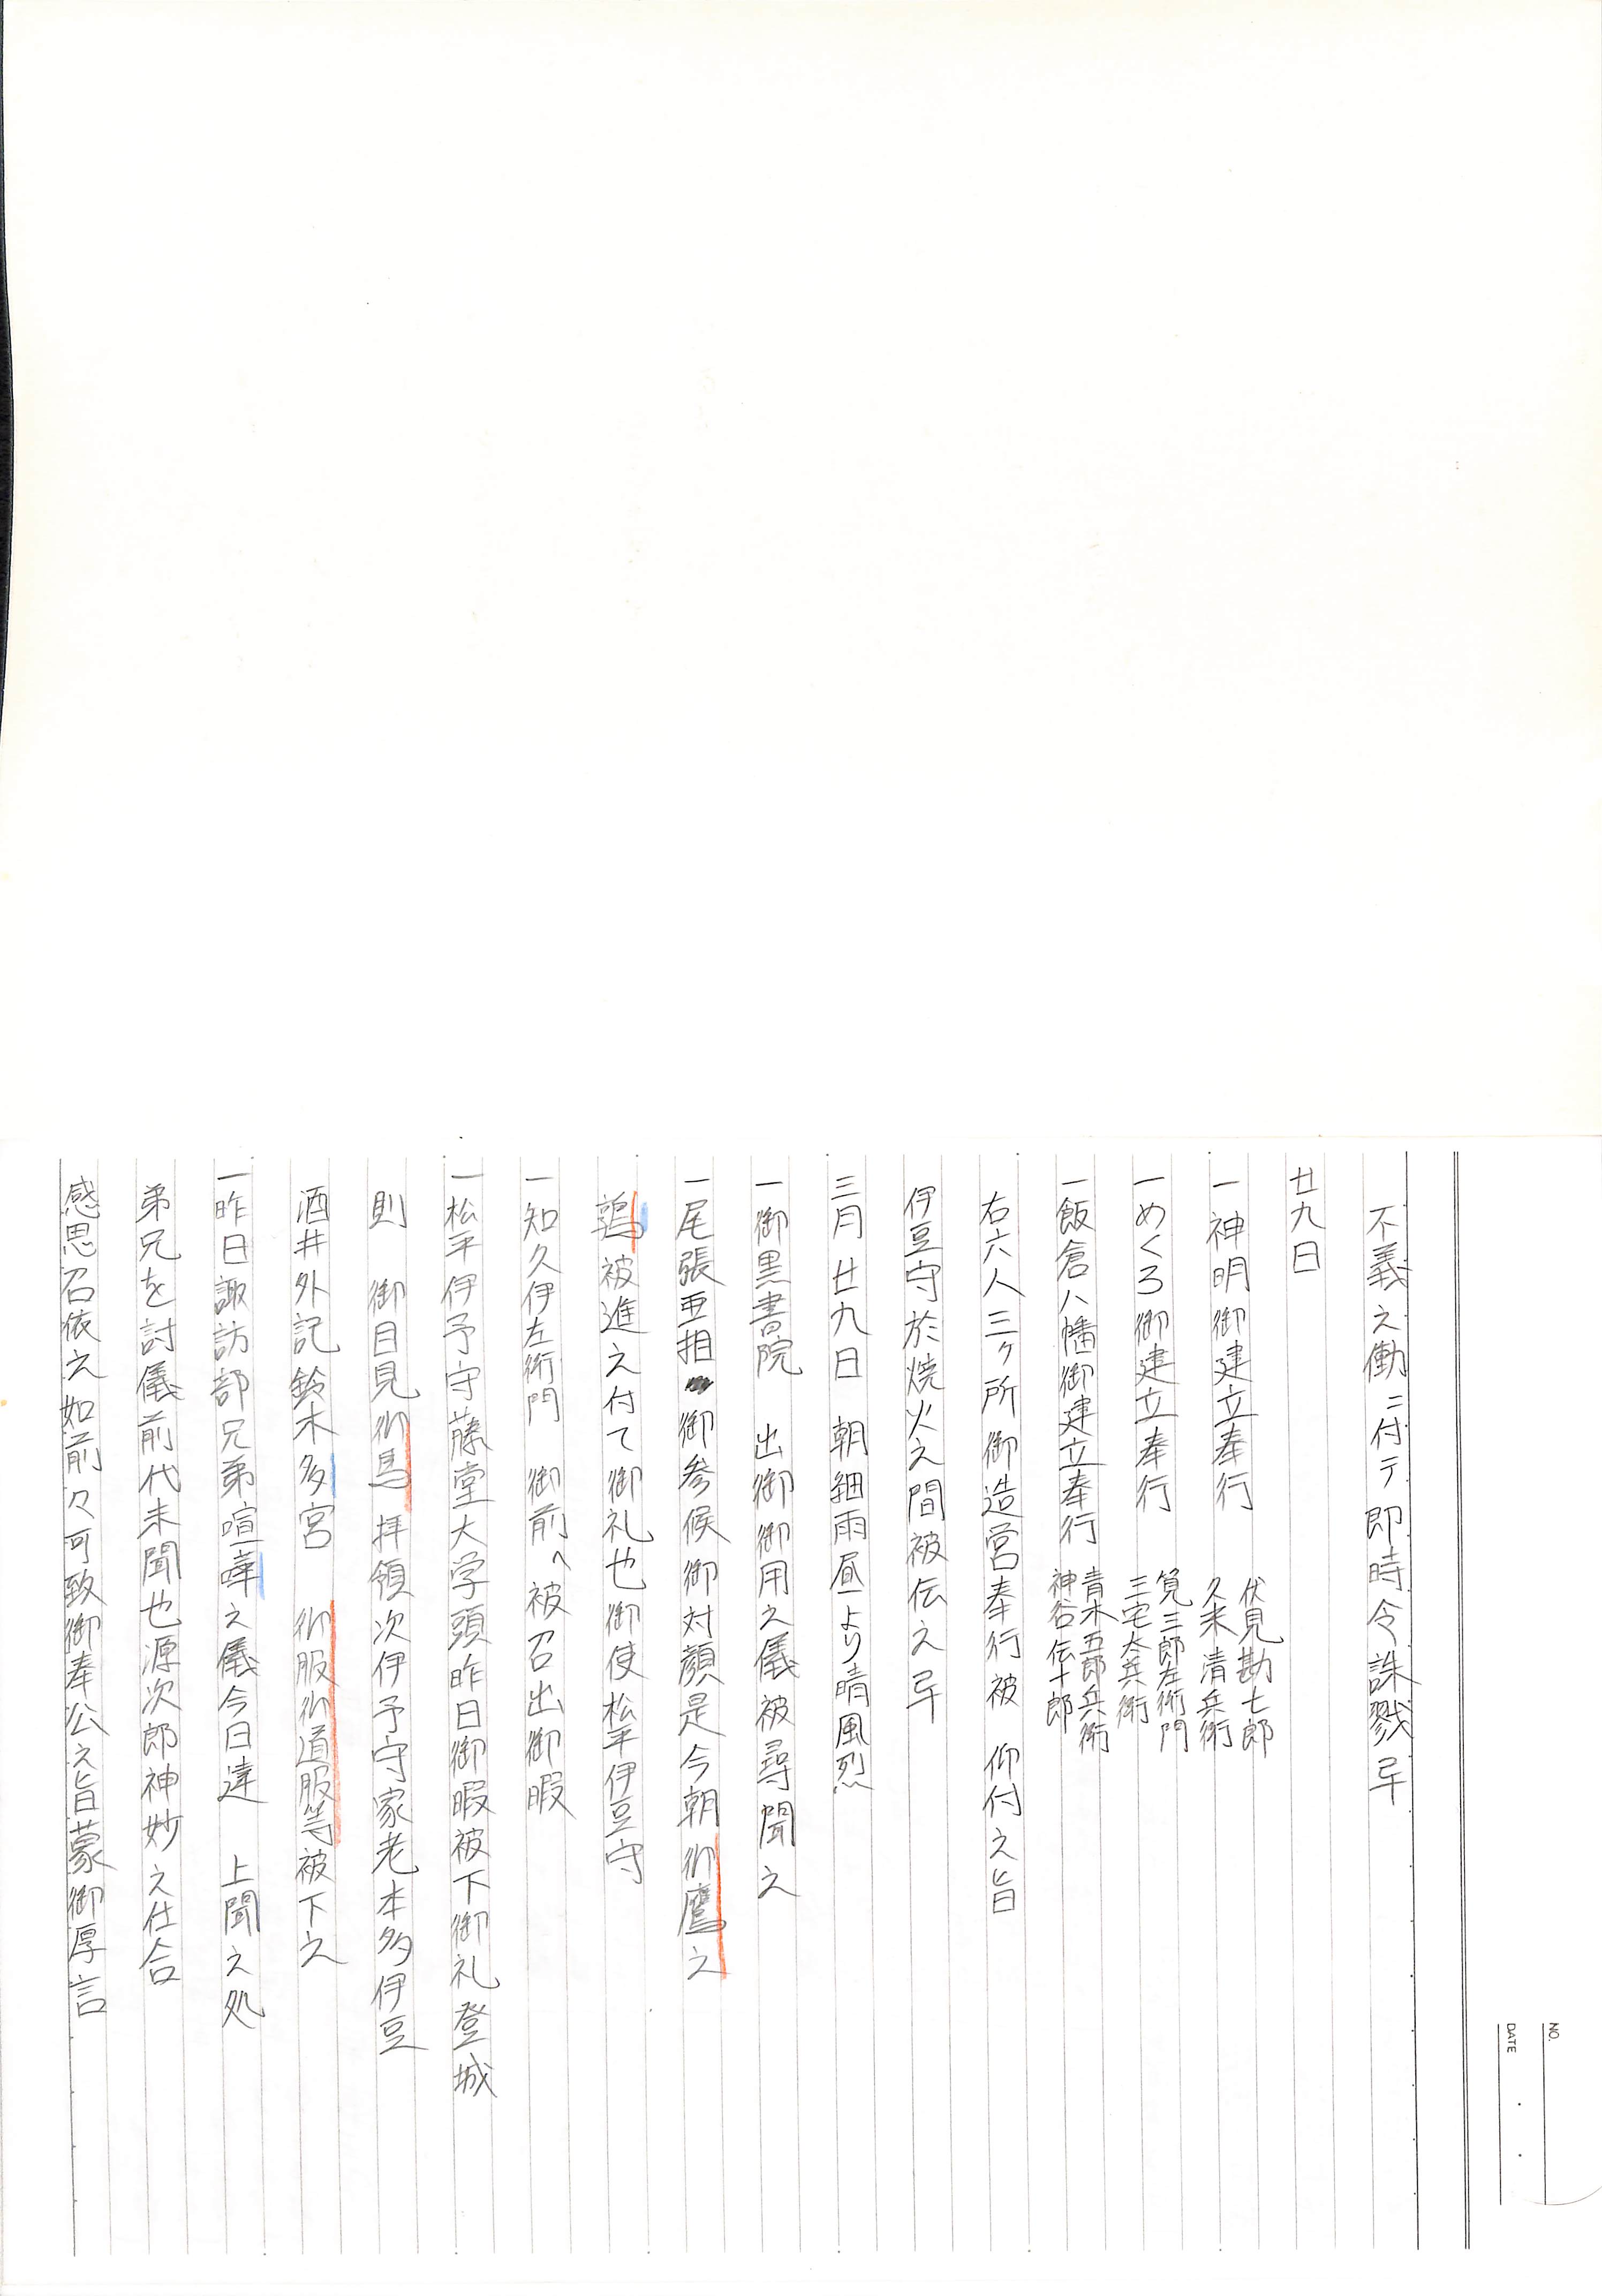 不義之働ニ付テ即時令誅戮畢
廿九日
一神明御建立奉行 伏見勘七郎
久米清兵衛
一めくろ御建立奉行 筧三郎左衛門
三宅太兵衛
一飯倉八幡御建立奉行 青木五郎兵衛
神谷伝十郎
右六人三ヶ所御造営奉行被 仰付之旨
伊豆守於焼火之間被伝之畢
三月廿九日 朝細雨昼より晴風烈
一御黒書院 出御御用之儀被尋聞之
一尾張亜相御参候御対顔是今朝御鷹之
鶉被進之付て御礼也御使松平伊豆守
一知久伊左衛門 御前へ被召出御暇
一松平伊予守藤堂大学頭昨日御暇被下御礼登城
則 御目見御馬拝領次伊予守家老本多伊豆
酒井外記鈴木多宮 御服御道服等被下之
一昨日諏訪部兄弟喧嘩之儀今日達 上聞之処
弟兄を討儀前代未聞也源次郎神妙之仕合
感思召依之如前々可致御奉公之旨蒙御厚言
NO.
DATE